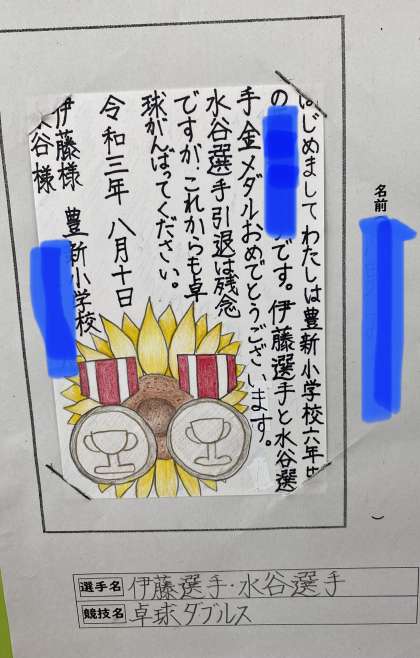 はじめまして わたしは豊新小学校六年生
の
です。伊藤選手と水谷選
手金メダルおめでとうございます。
水谷選手引退は残念
ですが、これからも卓
球がんばってください。
令和三年 八月十日
伊藤様 豊新小学校
水谷様
名前
選手名 伊藤選手・水谷選手
競技名 卓球ダブルス